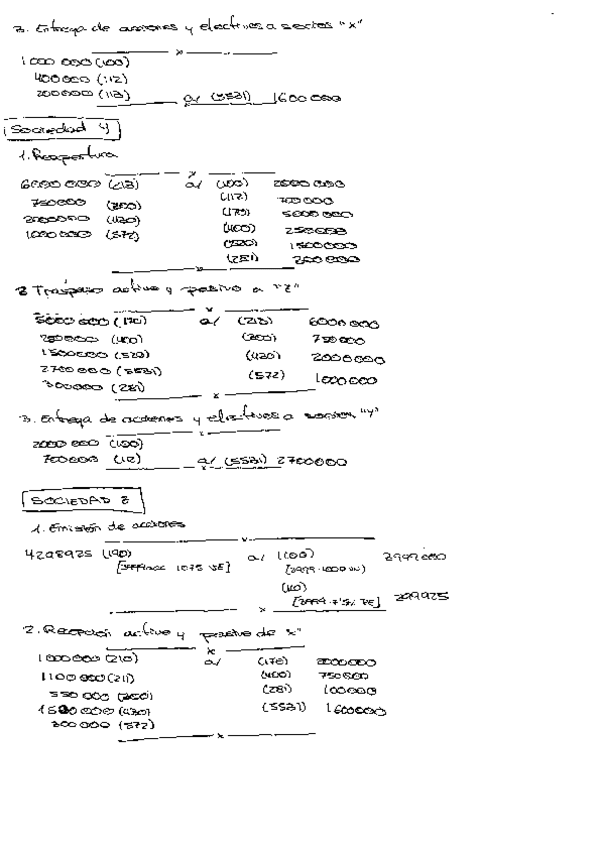 3. Entrega de acciones y efectivos a socios "X"
x
1 000 000 (100)
400 000 (112)
200 000 (113) a/ (5531) 1600 000
Sociedad Y
1. Reapertura
x
6000 000 (213) a/ (100) 2000 000
750000 (300) (112) 700 000
2000000 (430) (170) 5000 000
1000 000 (572) (400) 250 000
(520) 1500000
(281) 300 000
x
2 Traspaso activo y pasivo a "Z"
x
5000 000 (170) a/ (213) 6000 000
250000 (400) (300) 750 000
1500000 (520) (430) 2000 000
2700 000 (5531) (572) 1000 000
300000 (281)
x
3. Entrega de acciones y efectivos a socios "Y"
x
2000 000 (100)
700000 (112) a/ (5531) 2700000
x
SOCIEDAD Z
1. Emisión de acciones
x
4298925 (190) a/ (100) 3999000
[3999 acc 1075 VE] [3999·1000 VN]
(110)
[3999·75 PE] 299925
x
2. Recepción activo y pasivo de "X"
x
1000000 (210) a/ (170) 2000000
1100 000 (211) (400) 750 000
550 000 (300) (281) 100000
1500000 (430) (5531) 1600000
300 000 (572)
x